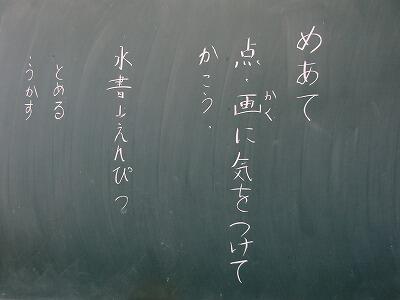 めあて
点・画に気をつけて
かく
かこう.
水書→えんぴつ
とめる
・うかす